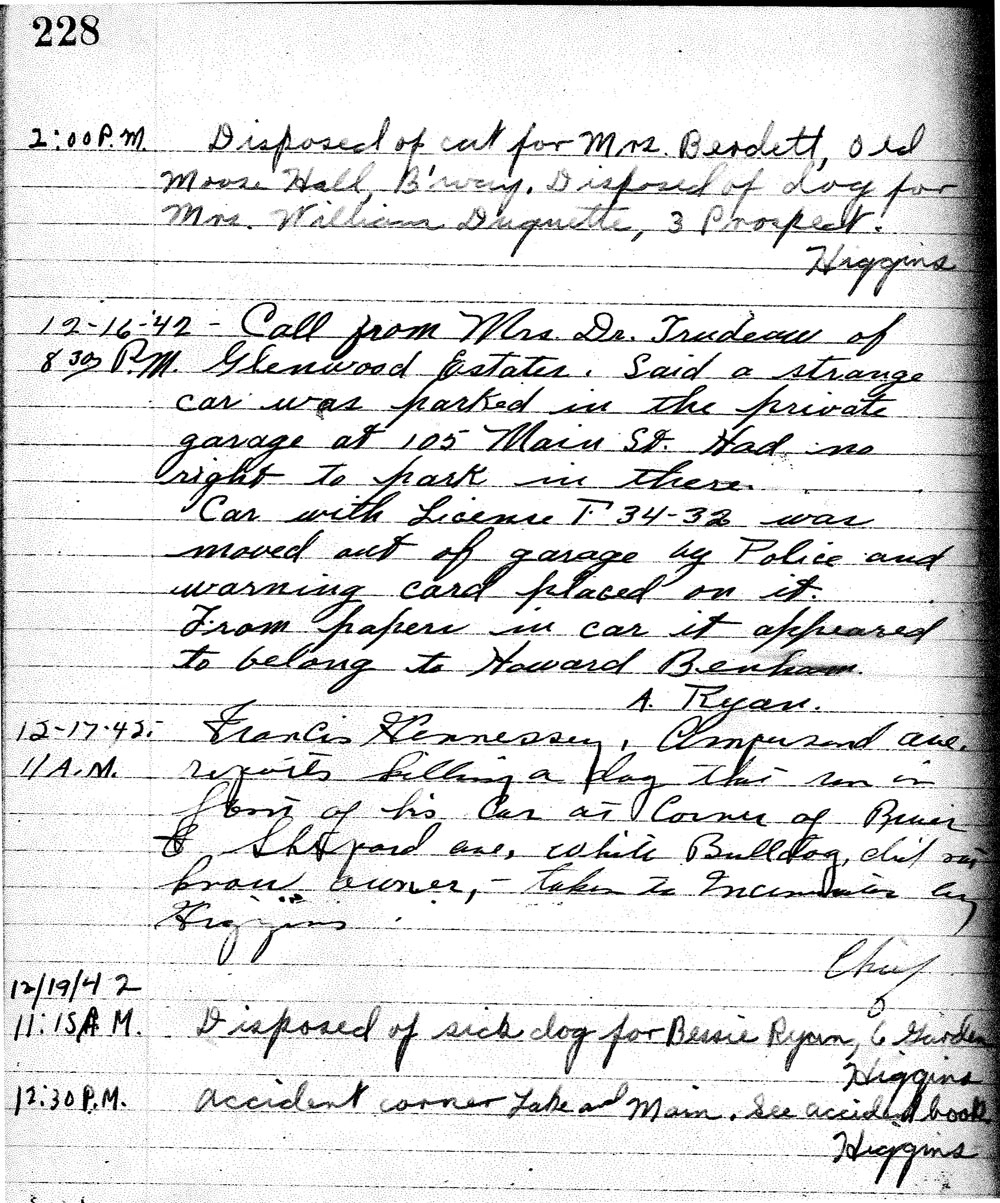 228
2:00 P.M. Disposed of cat for Mrs. Berdett, Old
Moose Hall, B'way. Disposed of dog for
Mrs. William Duquette, 3 Prospect.
Higgins
12-16-42 - Call from Mrs. Dr. Trudeau of
8 30 P.M. Glenwood Estates. Said a strange
car was parked in the private
garage at 105 Main St. Had no
right to park in there.
Car with License T 34-32 was
moved out of garage by Police and
warning card placed on it.
From papers in car it appeared
to belong to Howard Benham.
A. Ryan.
12-17-42. Francis Hennessey, Ampersand ave.
11 A.M. reports killing a dog that run in
front of his Car at Corner of River
& Shepard ave, white Bulldog, did not
know owner, - taken to Incinerator by
Higgins
Chief
12/19/42
11:15 A.M. Disposed of sick dog for Bessie Ryan, 6 Garden
Higgins
12:30 P.M. Accident corner Lake and Main. See accident book
Higgins